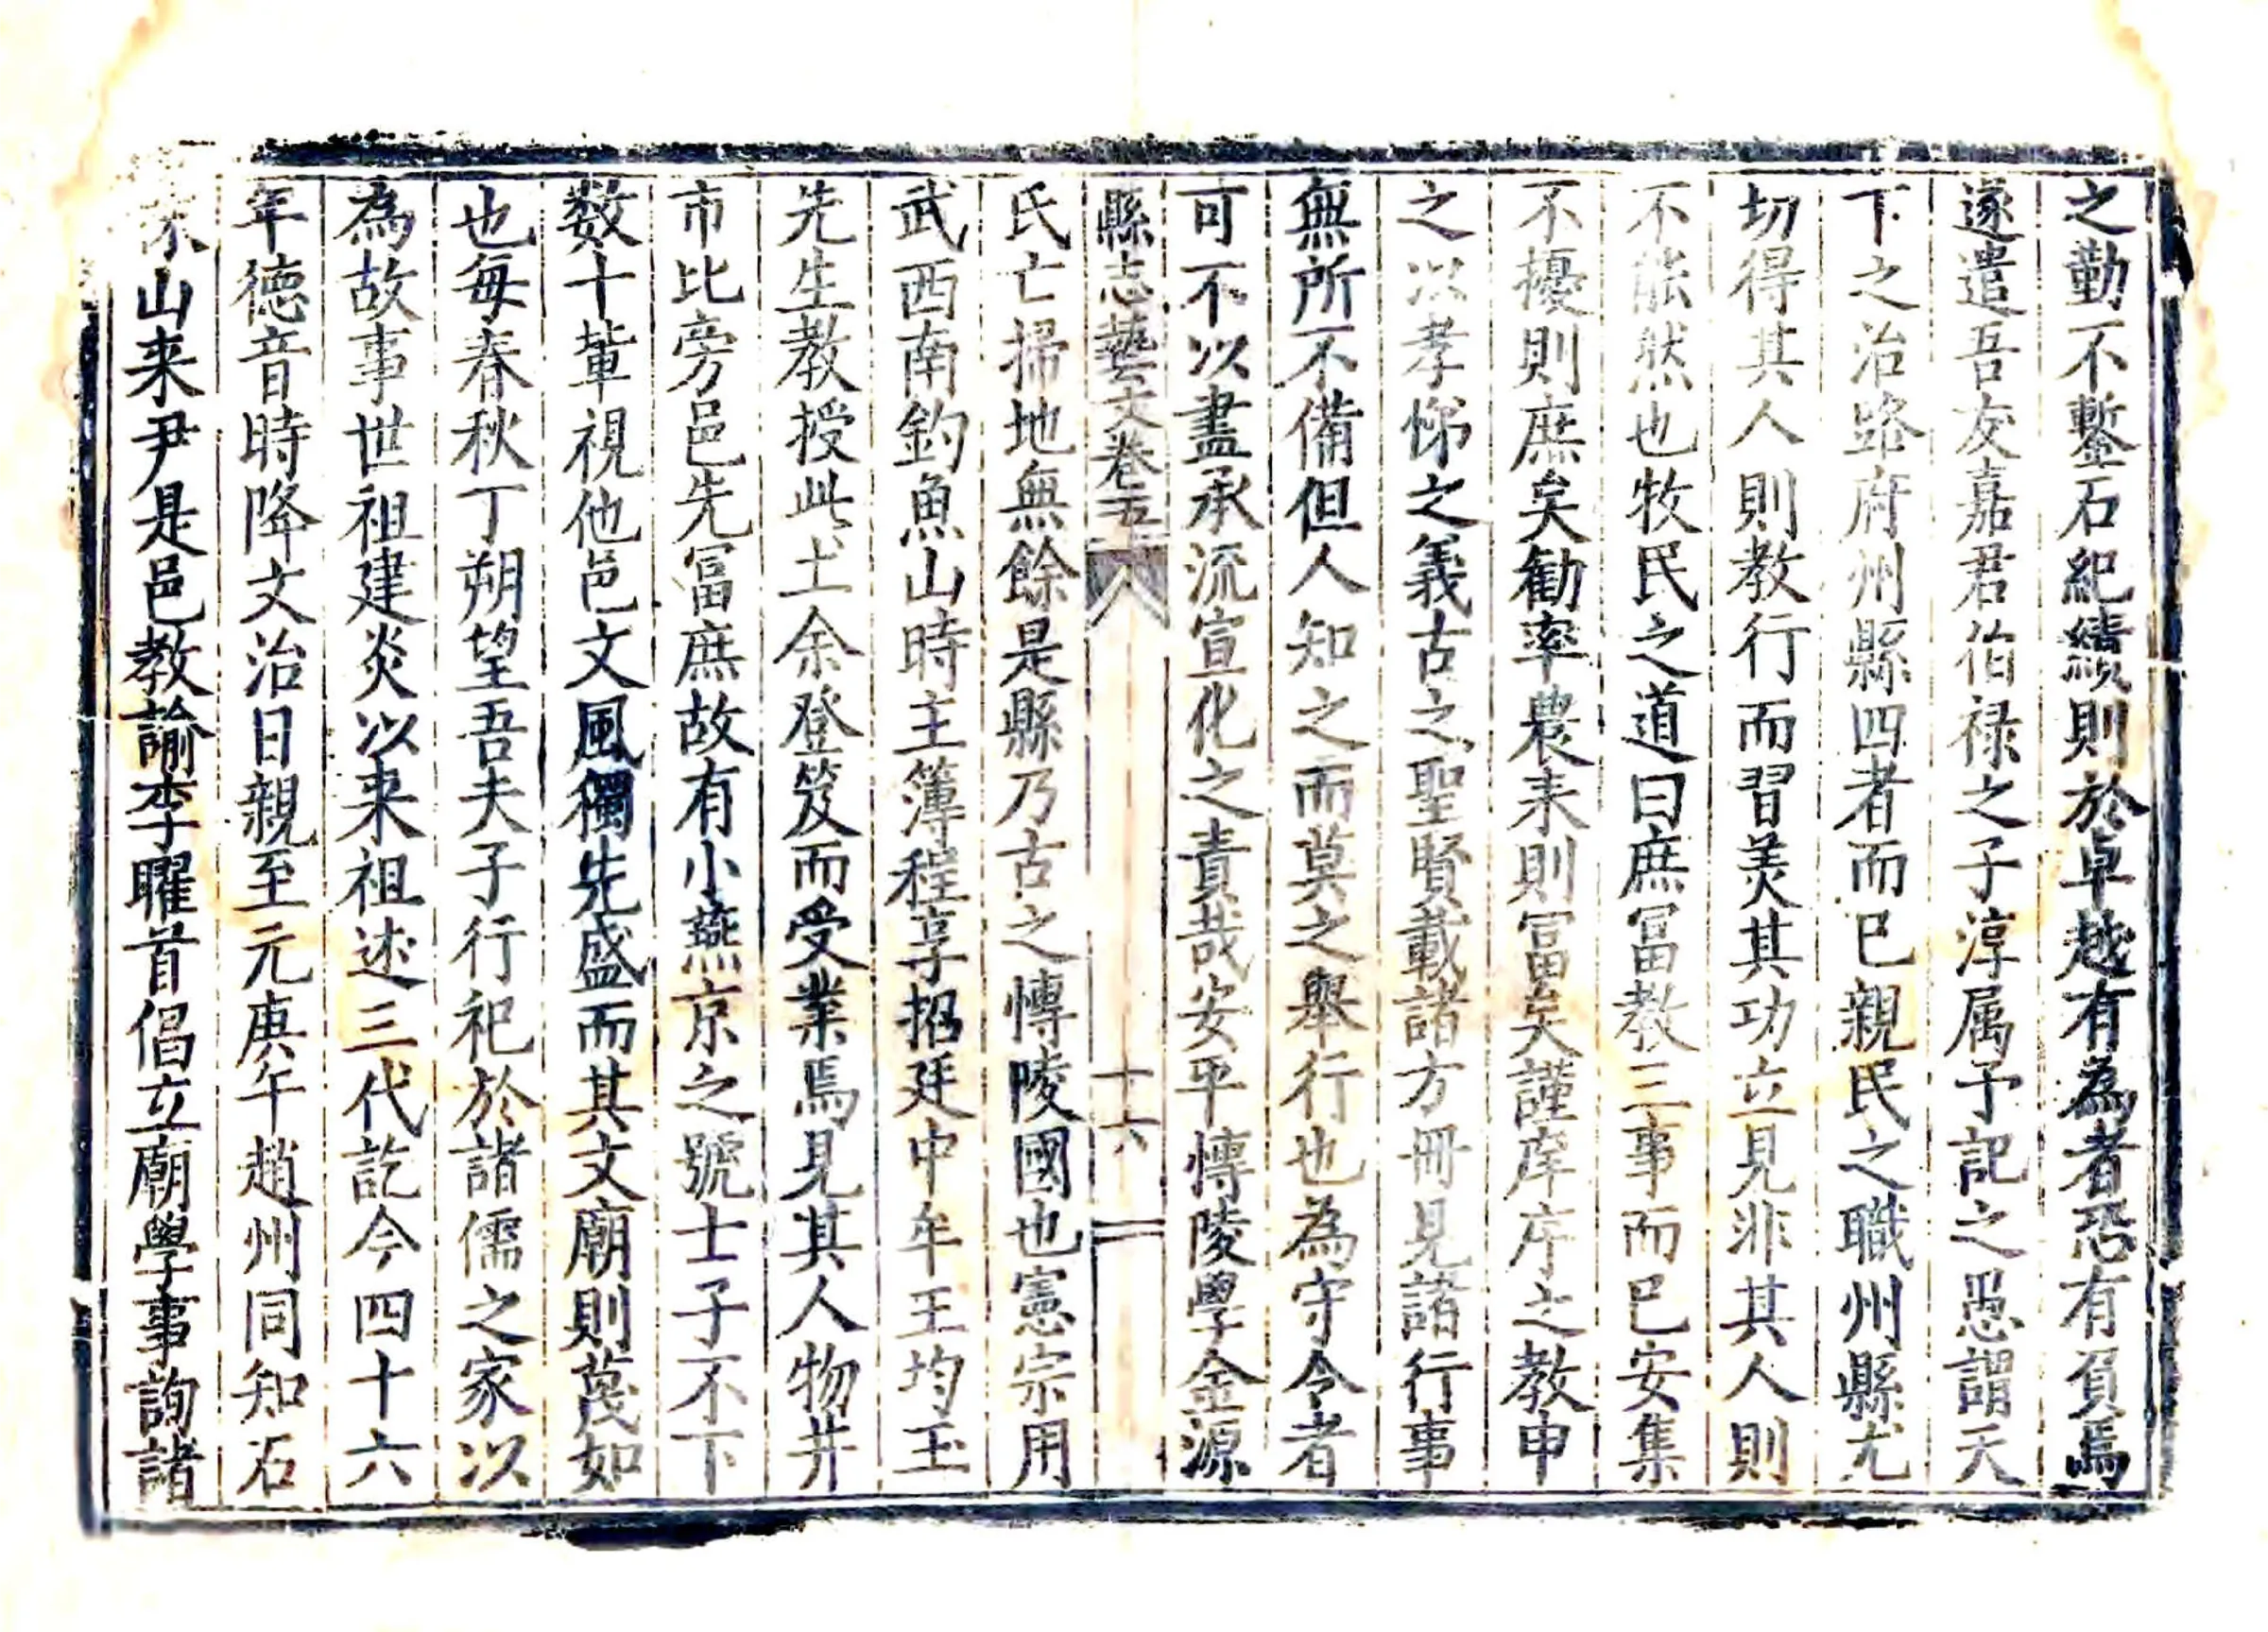 之勤不鏨石紀績則於卓越有為者恐有負焉
遂遣吾友嘉君伯禄之子淳属予記之愚謂天
下之治路府州縣四者而巳親民之職州縣尤
切得其人則教行而習羙其功立見非其人則
不能然也牧民之道曰庶冨教三事而巳安集
不擾則庶矣勸率農耒則冨矣謹庠序之教申
之以孝悌之義古之聖賢載諸方冊見諸行事
無所不備但人知之而莫之舉行也為守令者
可不以盡承流宣化之責哉安平愽陵學金源
縣志藝文卷五 十六
氏亡掃地無餘是縣乃古之愽陵國也憲宗用
武西南釣魚山時主簿程享招廷中牟王均玉
先生教授此土余登笈而受業焉見其人物井
市比旁邑先冨庶故有小燕京之號士子不下
数十軰視他邑文風獨先盛而其文廟則蔑如
也每春秋丁朔望吾夫子行祀於諸儒之家以
為故事世祖建炎以来祖述三代訖今四十六
年德音時降文治日親至元庚午趙州同知石
山来尹是邑教諭李曜首倡立廟學事詢諸